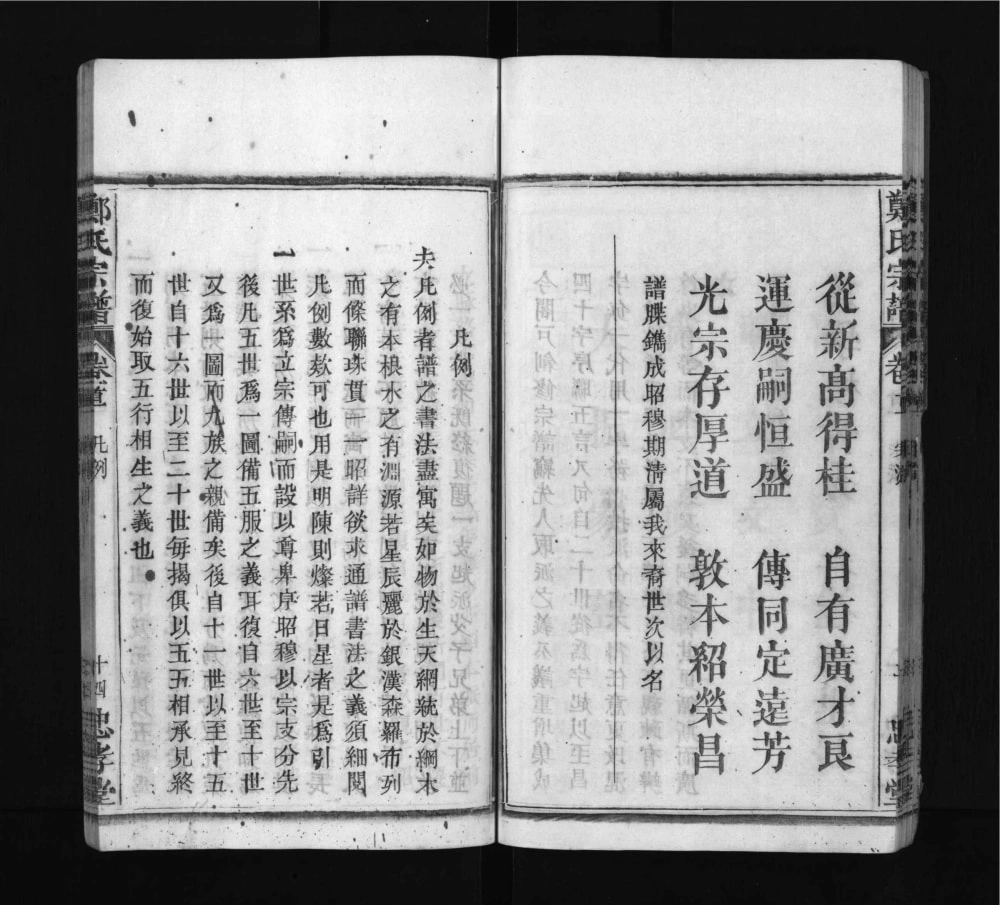 鄭氏宗譜
從新高得桂 自有廣才良
運慶嗣恒盛 傳同定遠芳
光宗存厚道 敦本紹榮昌
譜牒鐫成昭穆期清屬我來裔世次以名
凡例
夫凡例者譜之書法盡寓矣如物於生天綱統於綱木
之有本根水之有淵源若星辰麗於銀漢森羅布列
而條聯珠貫而寓一昭詳欲求通譜書法之義須細閱
凡例數欵可也用是明陳則燦若日星者是爲引
一世系爲立宗傳嗣而設以尊卑序昭穆以宗支分先
後凡五世爲一圖備五服之義耳復自六世至十世
又爲此圖而九族之親備矣後自十一世以至十五
世自十六世以至二十世每揭俱以五五相承見終
而復始取五行相生之義也
鄭氏宗譜 卷首 凡例 十四 忠孝堂